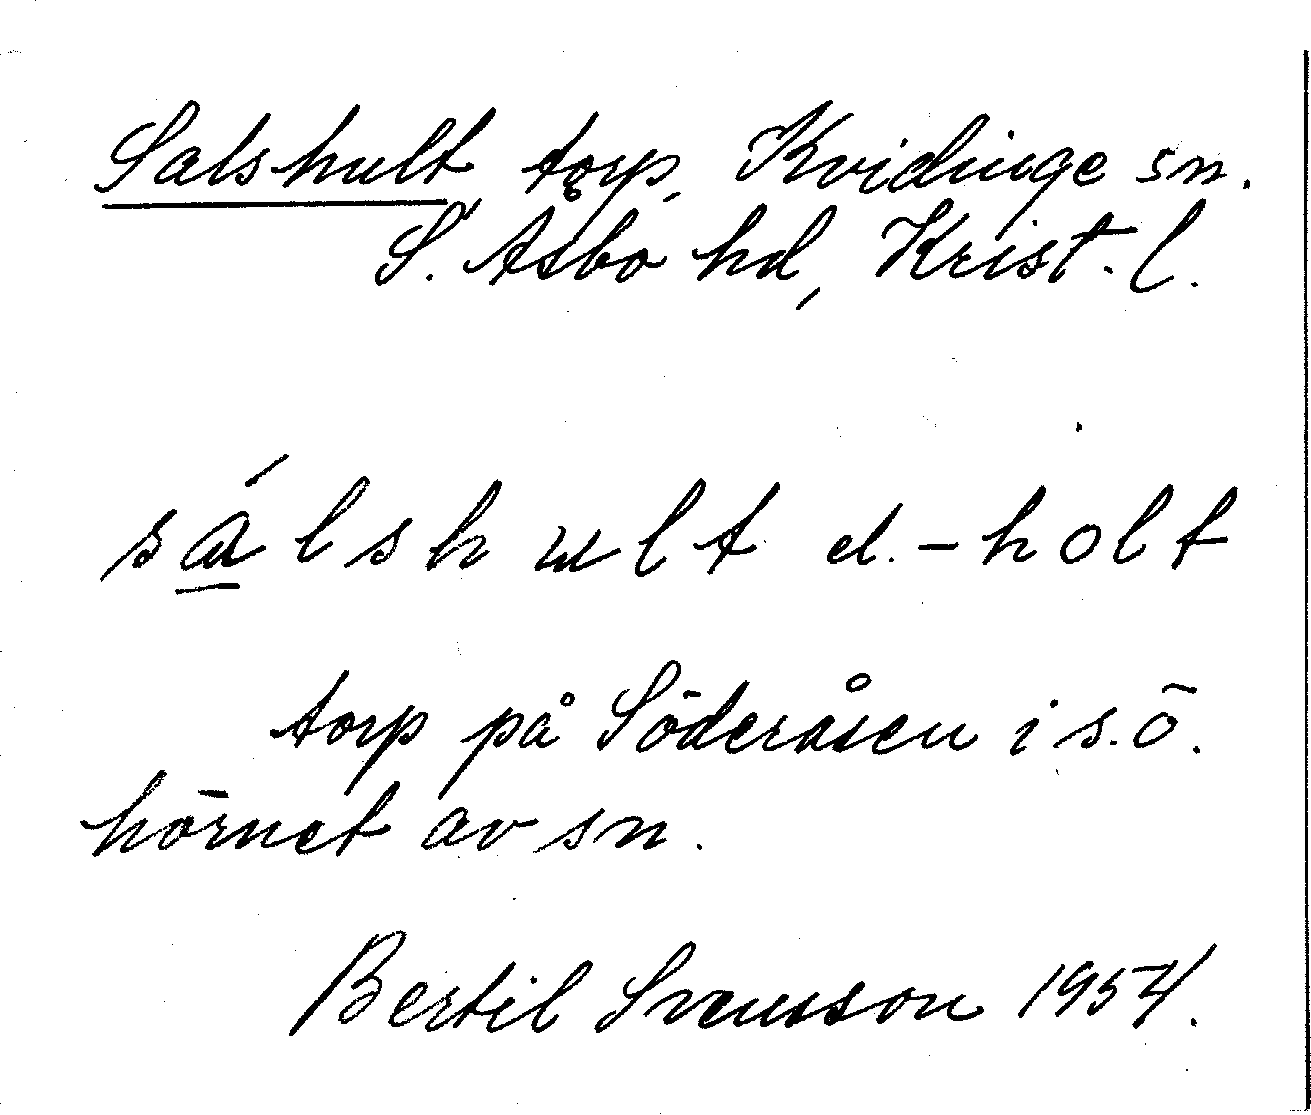 Salshult, torp, Kvidinge sn.
S. Åsbo hd, Krist. l.
sálshult el. -holt
torp på Söderåsen i s.ö.
hörnet av sn.
Bertil Svensson 1954.